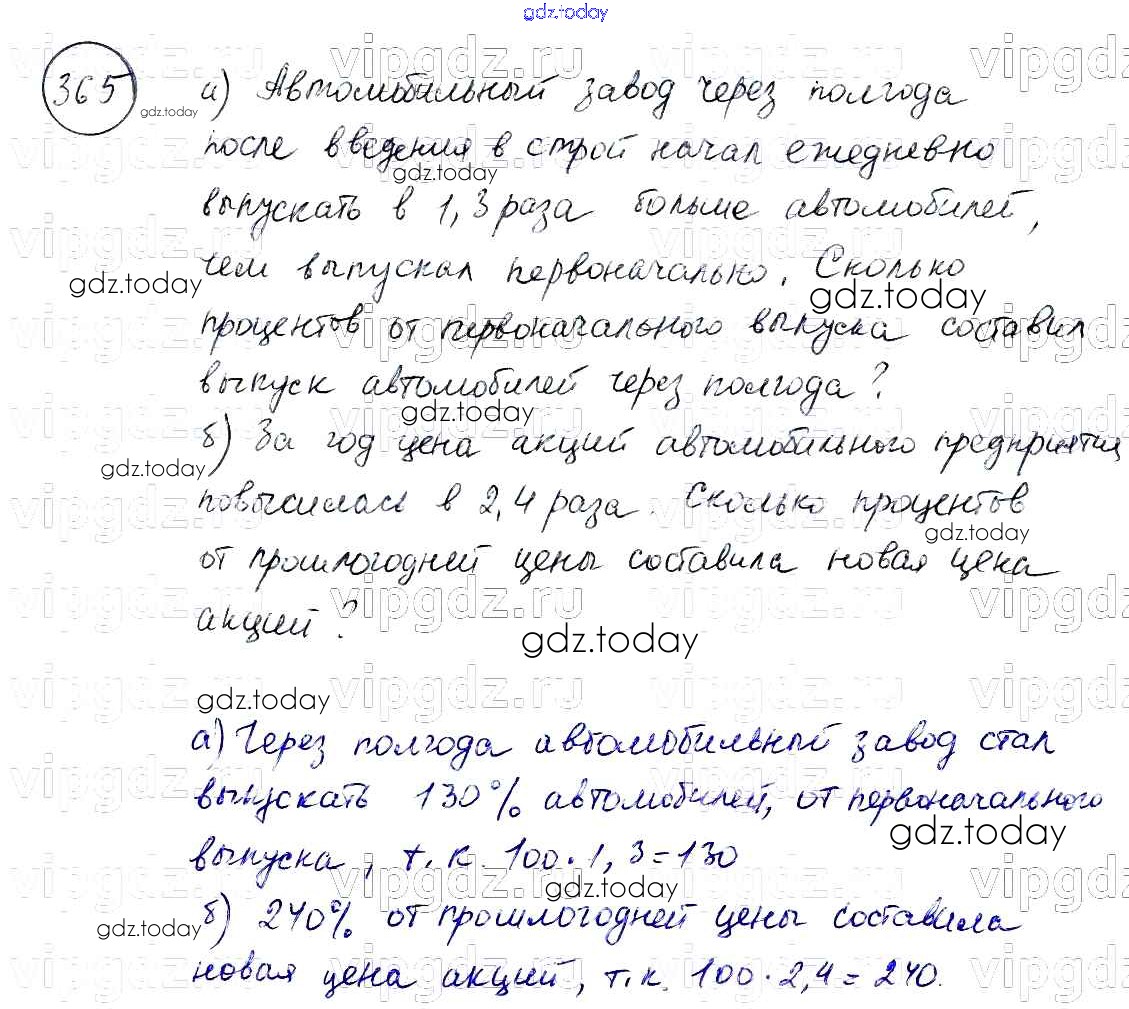 gdz.today
365
а) Автомобильный завод через полгода
после введения в строй начал ежедневно
выпускать в 1,3 раза больше автомобилей,
чем выпускал первоначально. Сколько
процентов от первоначального выпуска составил
выпуск автомобилей через полгода?
б) За год цена акций автомобильного предприятия
повысилась в 2,4 раза. Сколько процентов
от прошлогодней цены составила новая цена
акций?
а) Через полгода автомобильный завод стал
выпускать 130% автомобилей, от первоначального
выпуска, т.к. 100·1,3=130
б) 240% от прошлогодней цены составила
новая цена акций, т.к. 100·2,4=240.